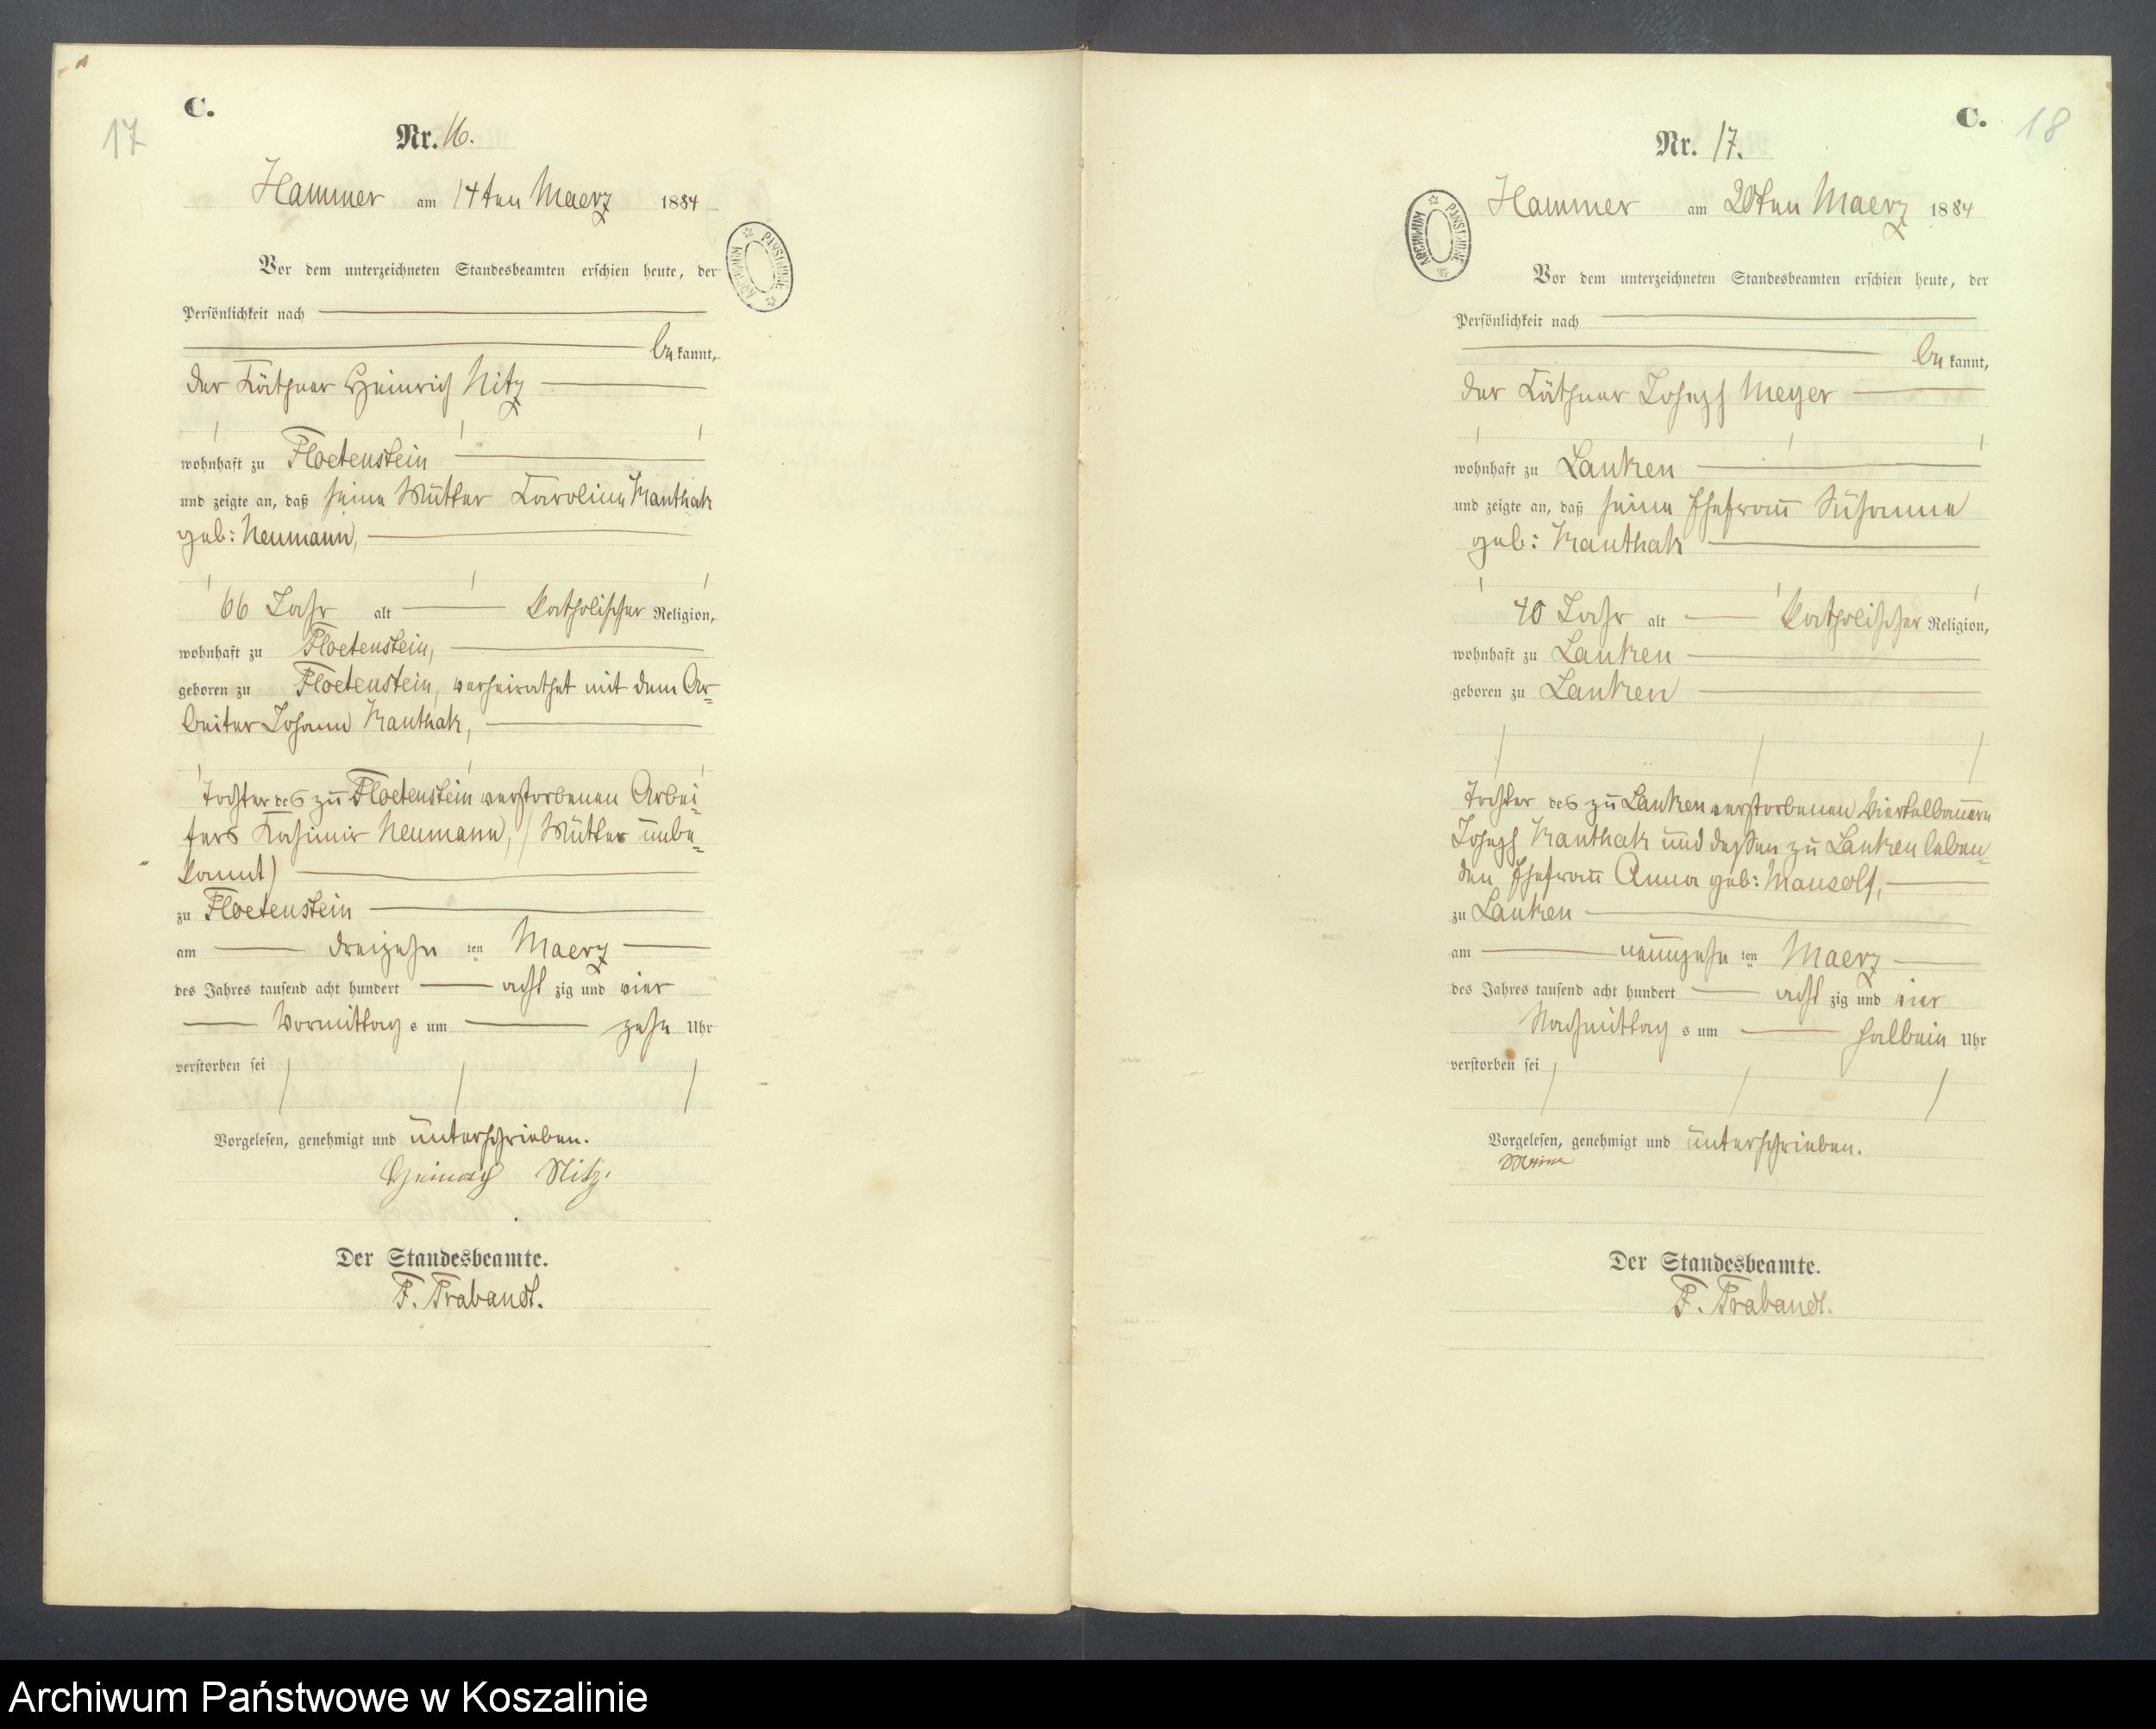 17
C.
Nr. 16.
Hammer am 14ten Maerz 1884
Vor dem unterzeichneten Standesbeamten erschien heute, der
Persönlichkeit nach
bekannt,
der Käthner Heinrich Nitz
wohnhaft zu Floetenstein
und zeigte an, daß seine Mutter Karoline Kanthak
geb: Neumann,
66 Jahr alt katholischer Religion,
wohnhaft zu Floetenstein,
geboren zu Floetenstein, verheirathet mit dem Ar=
beiter Johann Kanthak,
Tochter des zu Floetenstein verstorbenen Arbei=
ters Kasimir Neumann, (Mutter unbe=
kannt)
zu Floetenstein
am dreizehn ten Maerz
des Jahres tausend acht hundert acht zig und vier
Vormittag s um zehn Uhr
verstorben sei
Vorgelesen, genehmigt und unterschrieben.
Heinrich Nitz.
Der Standesbeamte.
F. Trabandt.
ARCHIWUM PAŃSTWOWE
18
C.
Nr. 17.
Hammer am 20ten Maerz 1884
Vor dem unterzeichneten Standesbeamten erschien heute, der
Persönlichkeit nach
bekannt,
der Käthner Joseph Meyer
wohnhaft zu Lanken
und zeigte an, daß seine Ehefrau Susanne
geb: Kanthak
40 Jahr alt katholischer Religion,
wohnhaft zu Lanken
geboren zu Lanken
Tochter des zu Lanken verstorbenen Viertelbauern
Joseph Kanthak und dessen zu Lanken leben=
den Ehefrau Anna geb: Mausolf,
zu Lanken
am neunzehn ten Maerz
des Jahres tausend acht hundert acht zig und vier
Nachmittag s um halbein Uhr
verstorben sei
Vorgelesen, genehmigt und unterschrieben.
Der Standesbeamte.
F. Trabandt.
ARCHIWUM PAŃSTWOWE
Archiwum Państwowe w Koszalinie